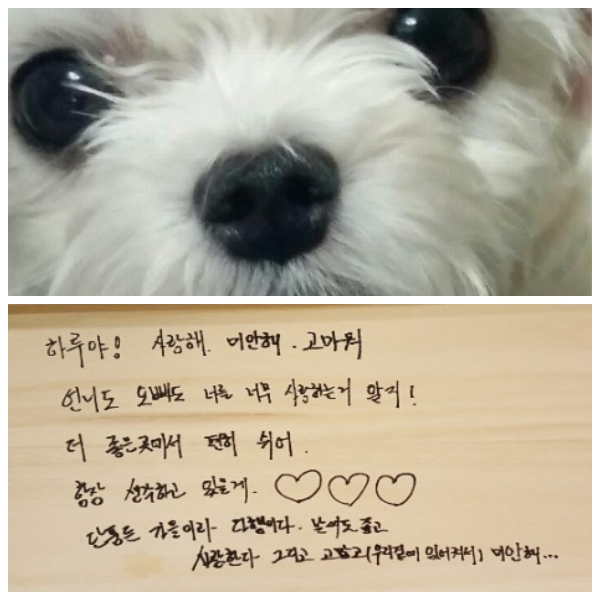 하루야! 사랑해. 미안해. 고마워
언니도 오빠도 너를 너무 사랑하는거 알지!
더 좋은곳에서 편히 쉬어.
항상 생각하고 있을게. ♡♡♡
단풍든 가을이라 다행이다. 날여도 좋고
사랑한다 그리고 고맙고(우리곁에 있어줘서) 미안해...